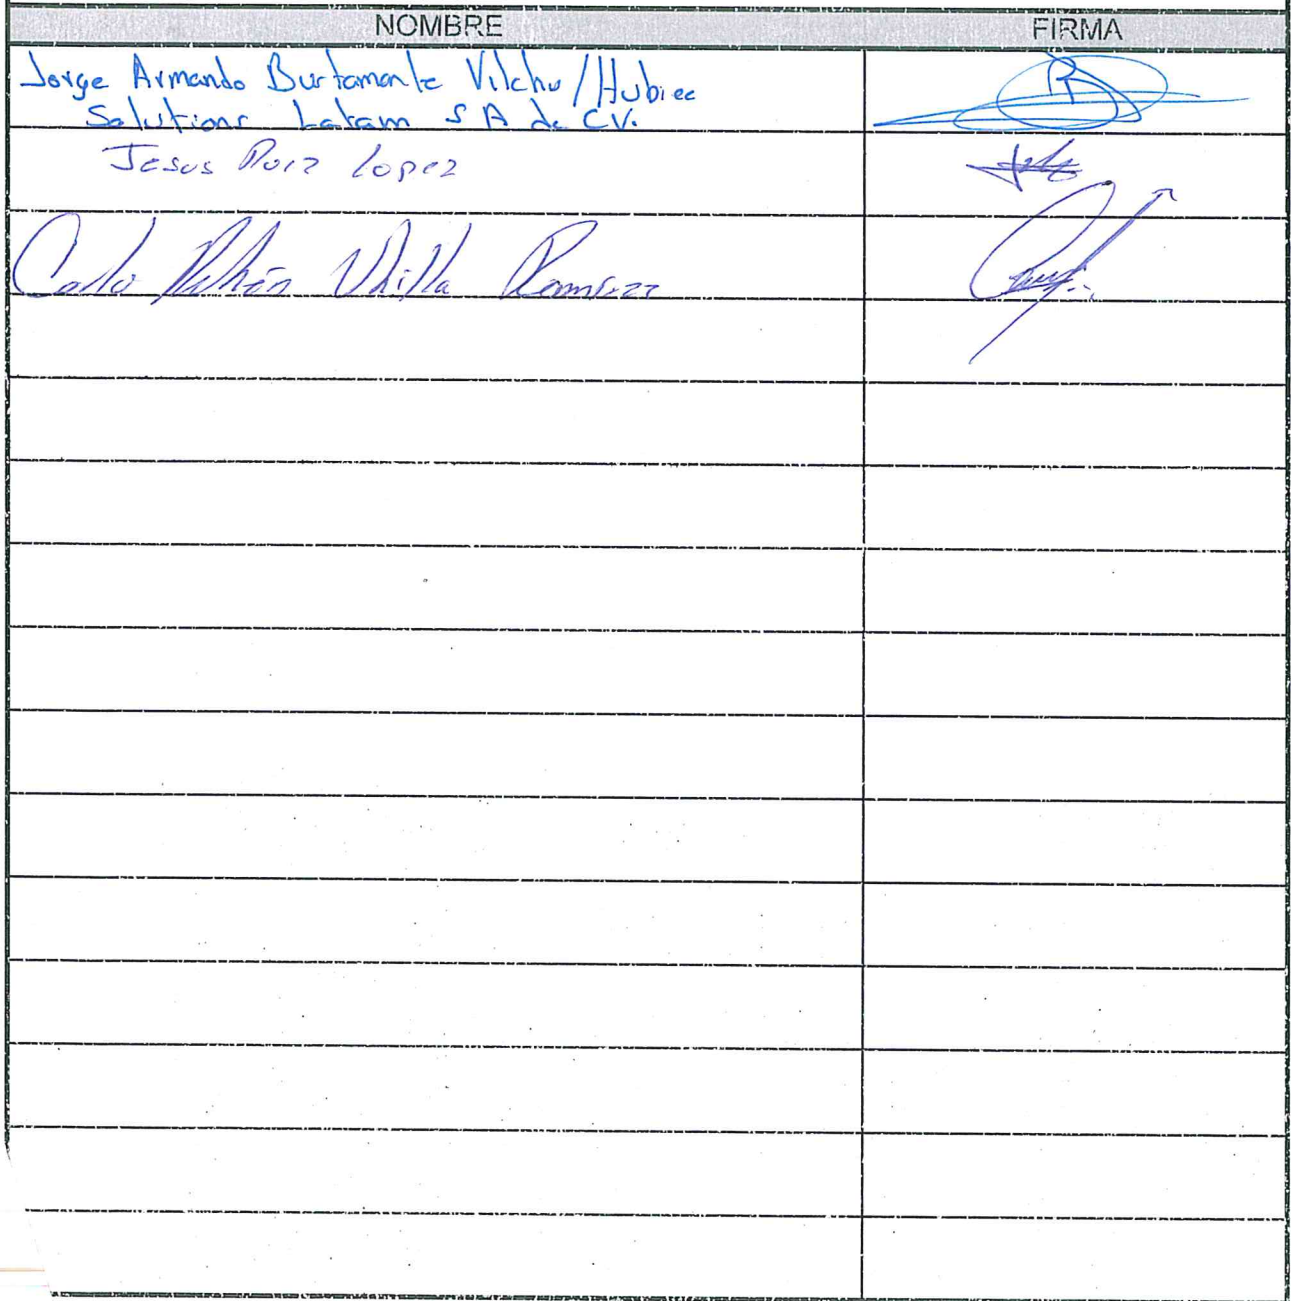 NOMBRE FIRMA
Jorge Armando Bustamante Vilchis/Hubiec
Solutions Latam S A de CV.
Jesus Ruiz Lopez
Ramirez